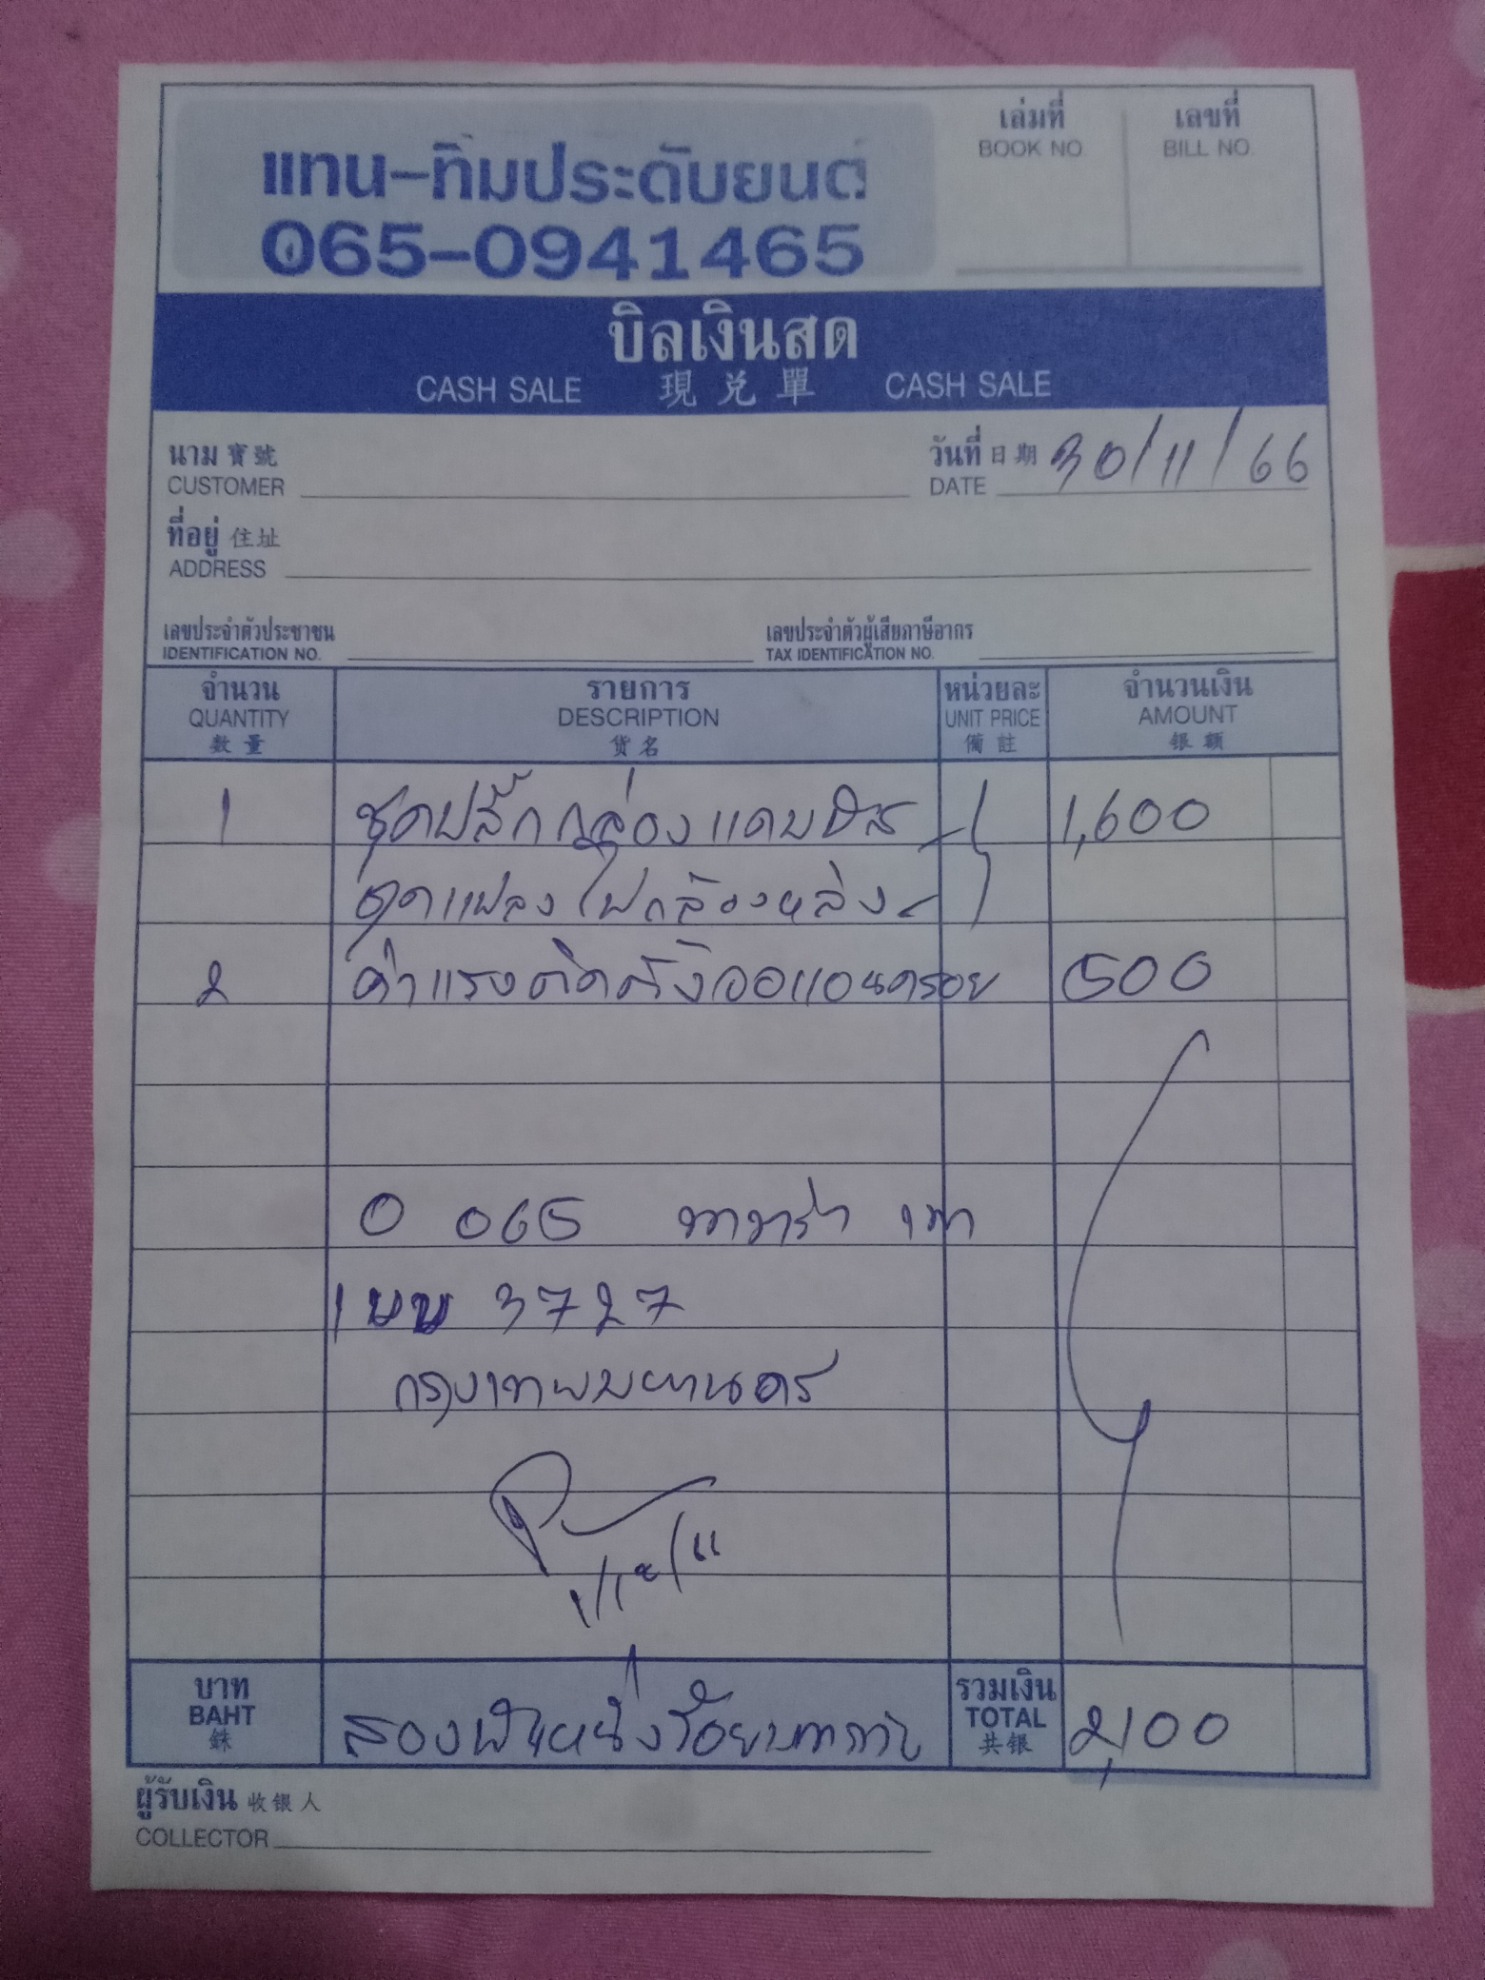 แทน-ทิมประดับยนต์
065-0941465
เล่มที่
BOOK NO.
เลขที่
BILL NO.
บิลเงินสด
CASH SALE 現兑單 CASH SALE
นาม 寳號
CUSTOMER
วันที่ 日期 30/11/66
DATE
ที่อยู่ 住址
ADDRESS
เลขประจำตัวประชาชน
IDENTIFICATION NO.
เลขประจำตัวผู้เสียภาษีอากร
TAX IDENTIFICATION NO.
จำนวน รายการ หน่วยละ จำนวนเงิน
QUANTITY DESCRIPTION UNIT PRICE AMOUNT
数量 货名 備註 银额
1 ชุดปลั๊กกล่องแคนบัส 1,600
ชุดแปลงไฟกล้องหลัง
2 ค่าแรงติดตั้งจอแอนดรอย 500
0 065 นาวาร่า เทา
1 ขบ 3727
กรุงเทพมหานคร
1/12/66
บาท
BAHT
銖
สองพันหนึ่งร้อยบาทถ้วน
รวมเงิน
TOTAL
共银
2,100
ผู้รับเงิน 收银人
COLLECTOR